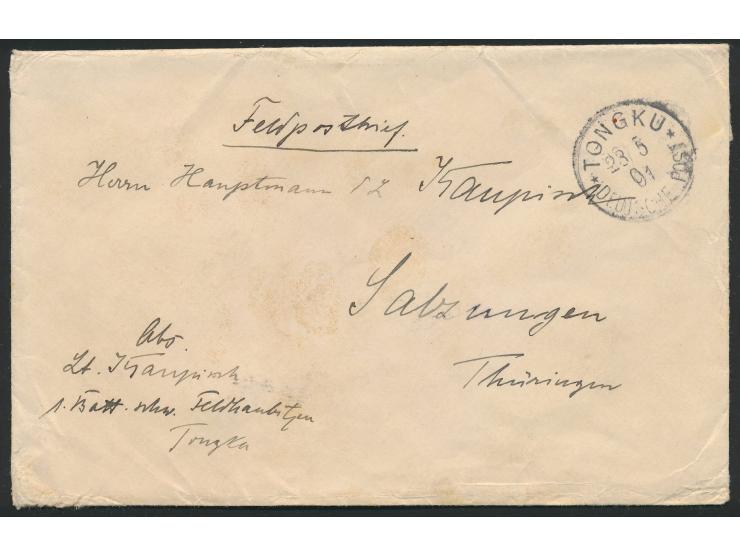 Feldpostbrief.
* TONGKU *
23 5
01
DEUTSCHE POST
Herrn Hauptmann Kaupisch
Salzungen
Thüringen
Abs
Lt. Kaupisch
1. Batt. schw. Feldhaubitzen
Tongku